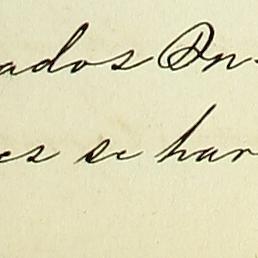 ados In
es se har